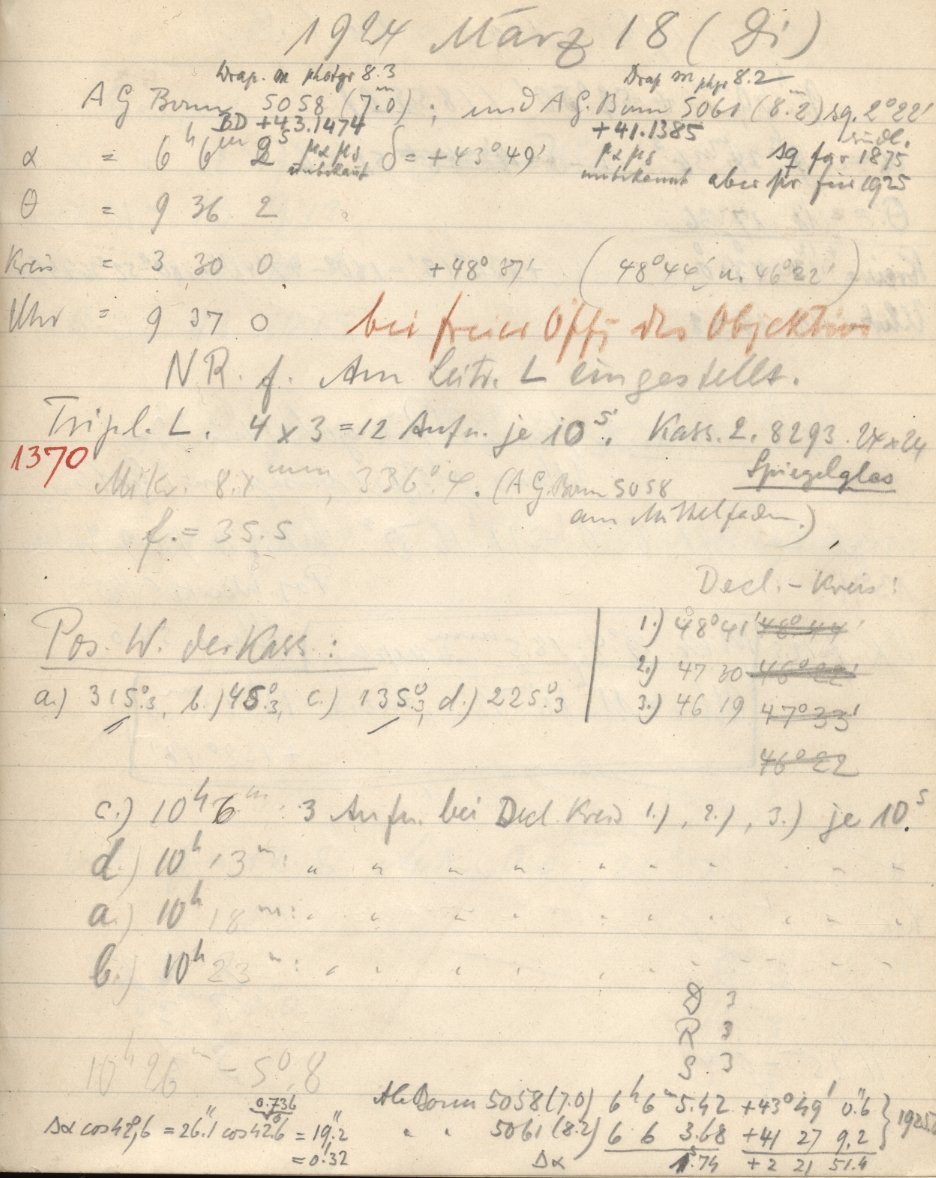 1924 März 18 (Di)
Drap. m photgr 8.3 Drap m phgr 8.2
AG Bonn 5058 (7.0); und AG. Bonn 5061 (8.2) sq. 2°22'
BD +43.1474 +41.1385 südl.
α = 6h 6m 2s μα μδ δ = +43°49' μα μδ sq für 1875
unbekannt unbekannt aber pr für 1925
θ = 9 36 2
Kreis = 3 30 0 +48° 37' (48°44' u. 46°22')
Uhr = 9 37 0 bei freier Öff. des Objektivs
NR. f. Am Leitr. L eingestellt.
Tripl. L. 4 x 3 = 12 Aufn. je 10s. Kass. 2. 8293. 24x24
1370 Spiegelglas
Mikr. 8.1 mm, 336°.4. (AG. Bonn 5058
am Mittelfaden.)
f. = 35.5
Decl.-Kreis:
Pos. W. der Kass.: 1.) 48°41' 48°44'
2.) 47 30 46°22'
a.) 315°.3, b.) 45°.3, c.) 135°.3, d.) 225°.3 3.) 46 19 47°33'
46°22
c.) 10h 6m. 3 Aufn. bei Decl. Kreis 1.), 2.), 3.) je 10s.
d.) 10h 13m: " " " " " " " " "
a.) 10h 18m: " " " " " " " " "
b.) 10h 23m: " " " " " " " " "
D 3
R 3
S. 3
10h 26m - 5°.8
AG Bonn 5058 (7.0) 6h 6m 5.42 +43°49' 0".6 } 1925.0
0.736
Δα cos 42°,6 = 26".1 cos 42.6 = 19".2 " " 5061 (8.2) 6 6 3.68 +41 27 9.2
= 0'.32 Δα 1.74 +2 21 51.4